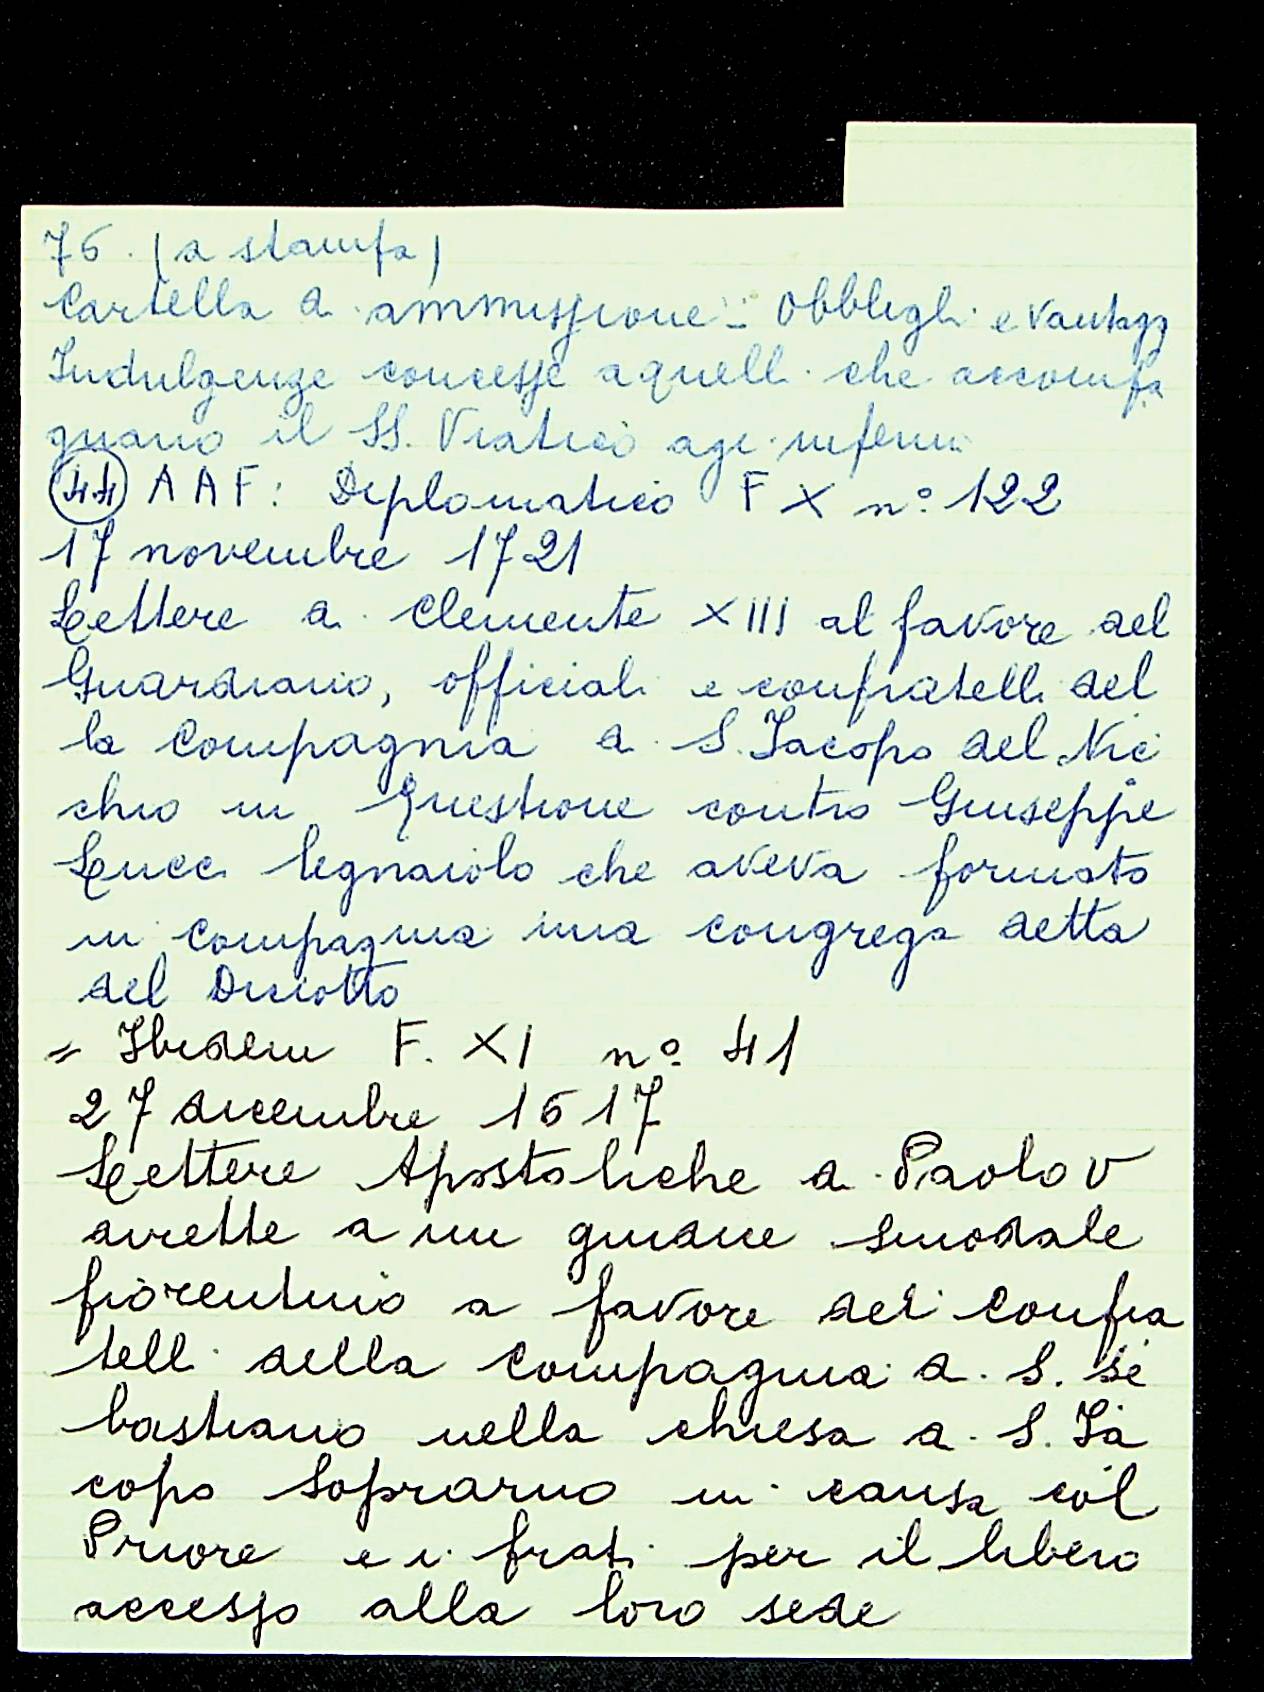 76. (a stampa)
Cartella di ammissione = Obblighi e vantaggi
Indulgenze concesse a quelli che accompa
gnano il SS. Viatico agl'infermi
(44) AAF: Diplomatico F X n° 122
17 novembre 1721
Lettere di Clemente XIII al favore del
Guardiano, officiali e confratelli del
la Compagnia di S. Jacopo del Nic
chio in questione contro Giuseppe
Lucci legnaiolo che aveva formato
in compagnia una congrega detta
del Diciotto
= Ibidem F. XI n° 41
27 dicembre 1617
Lettere Apostoliche di Paolo V
dirette a un giudice sinodale
fiorentino a favore dei confra
telli della compagnia di S. Se
bastiano nella chiesa di S. Ja
copo Soprarno in causa col
Priore e i frati per il libero
accesso alla loro sede